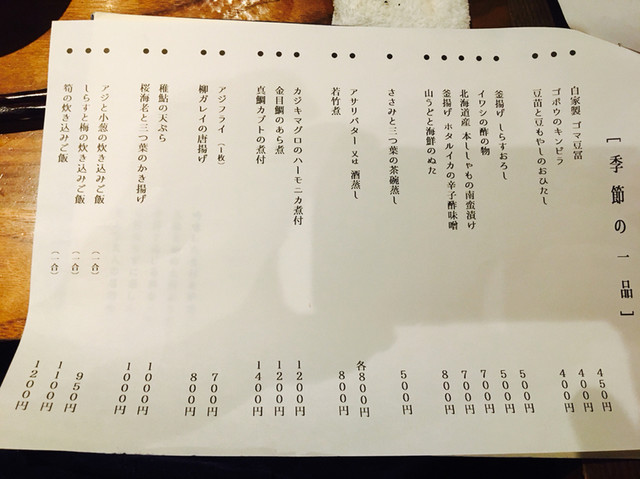 [季節の一品]
● 自家製 ゴマ豆冨 450円
● ゴボウのキンピラ 400円
● 豆苗と豆もやしのおひたし 400円
● 釜揚げ しらすおろし 500円
● イワシの酢の物 500円
● 北海道産 本ししゃもの南蛮漬け 700円
● 釜揚げ ホタルイカの辛子酢味噌 700円
● 山うどと海鮮のぬた 800円
● ささみと三つ葉の茶碗蒸し 500円
● アサリバター 又は 酒蒸し 各800円
● 若竹煮 800円
● カジキマグロのハーモニカ煮付 1200円
● 金目鯛のあら煮 1200円
● 真鯛カブトの煮付 1400円
● アジフライ (1枚) 700円
● 柳ガレイの唐揚げ 800円
● 稚鮎の天ぷら 1000円
● 桜海老と三つ葉のかき揚げ 1000円
● アジと小葱の炊き込みご飯 (一合) 950円
● しらすと梅の炊き込みご飯 (一合) 1100円
●筍の炊き込みご飯 (一合) 1200円